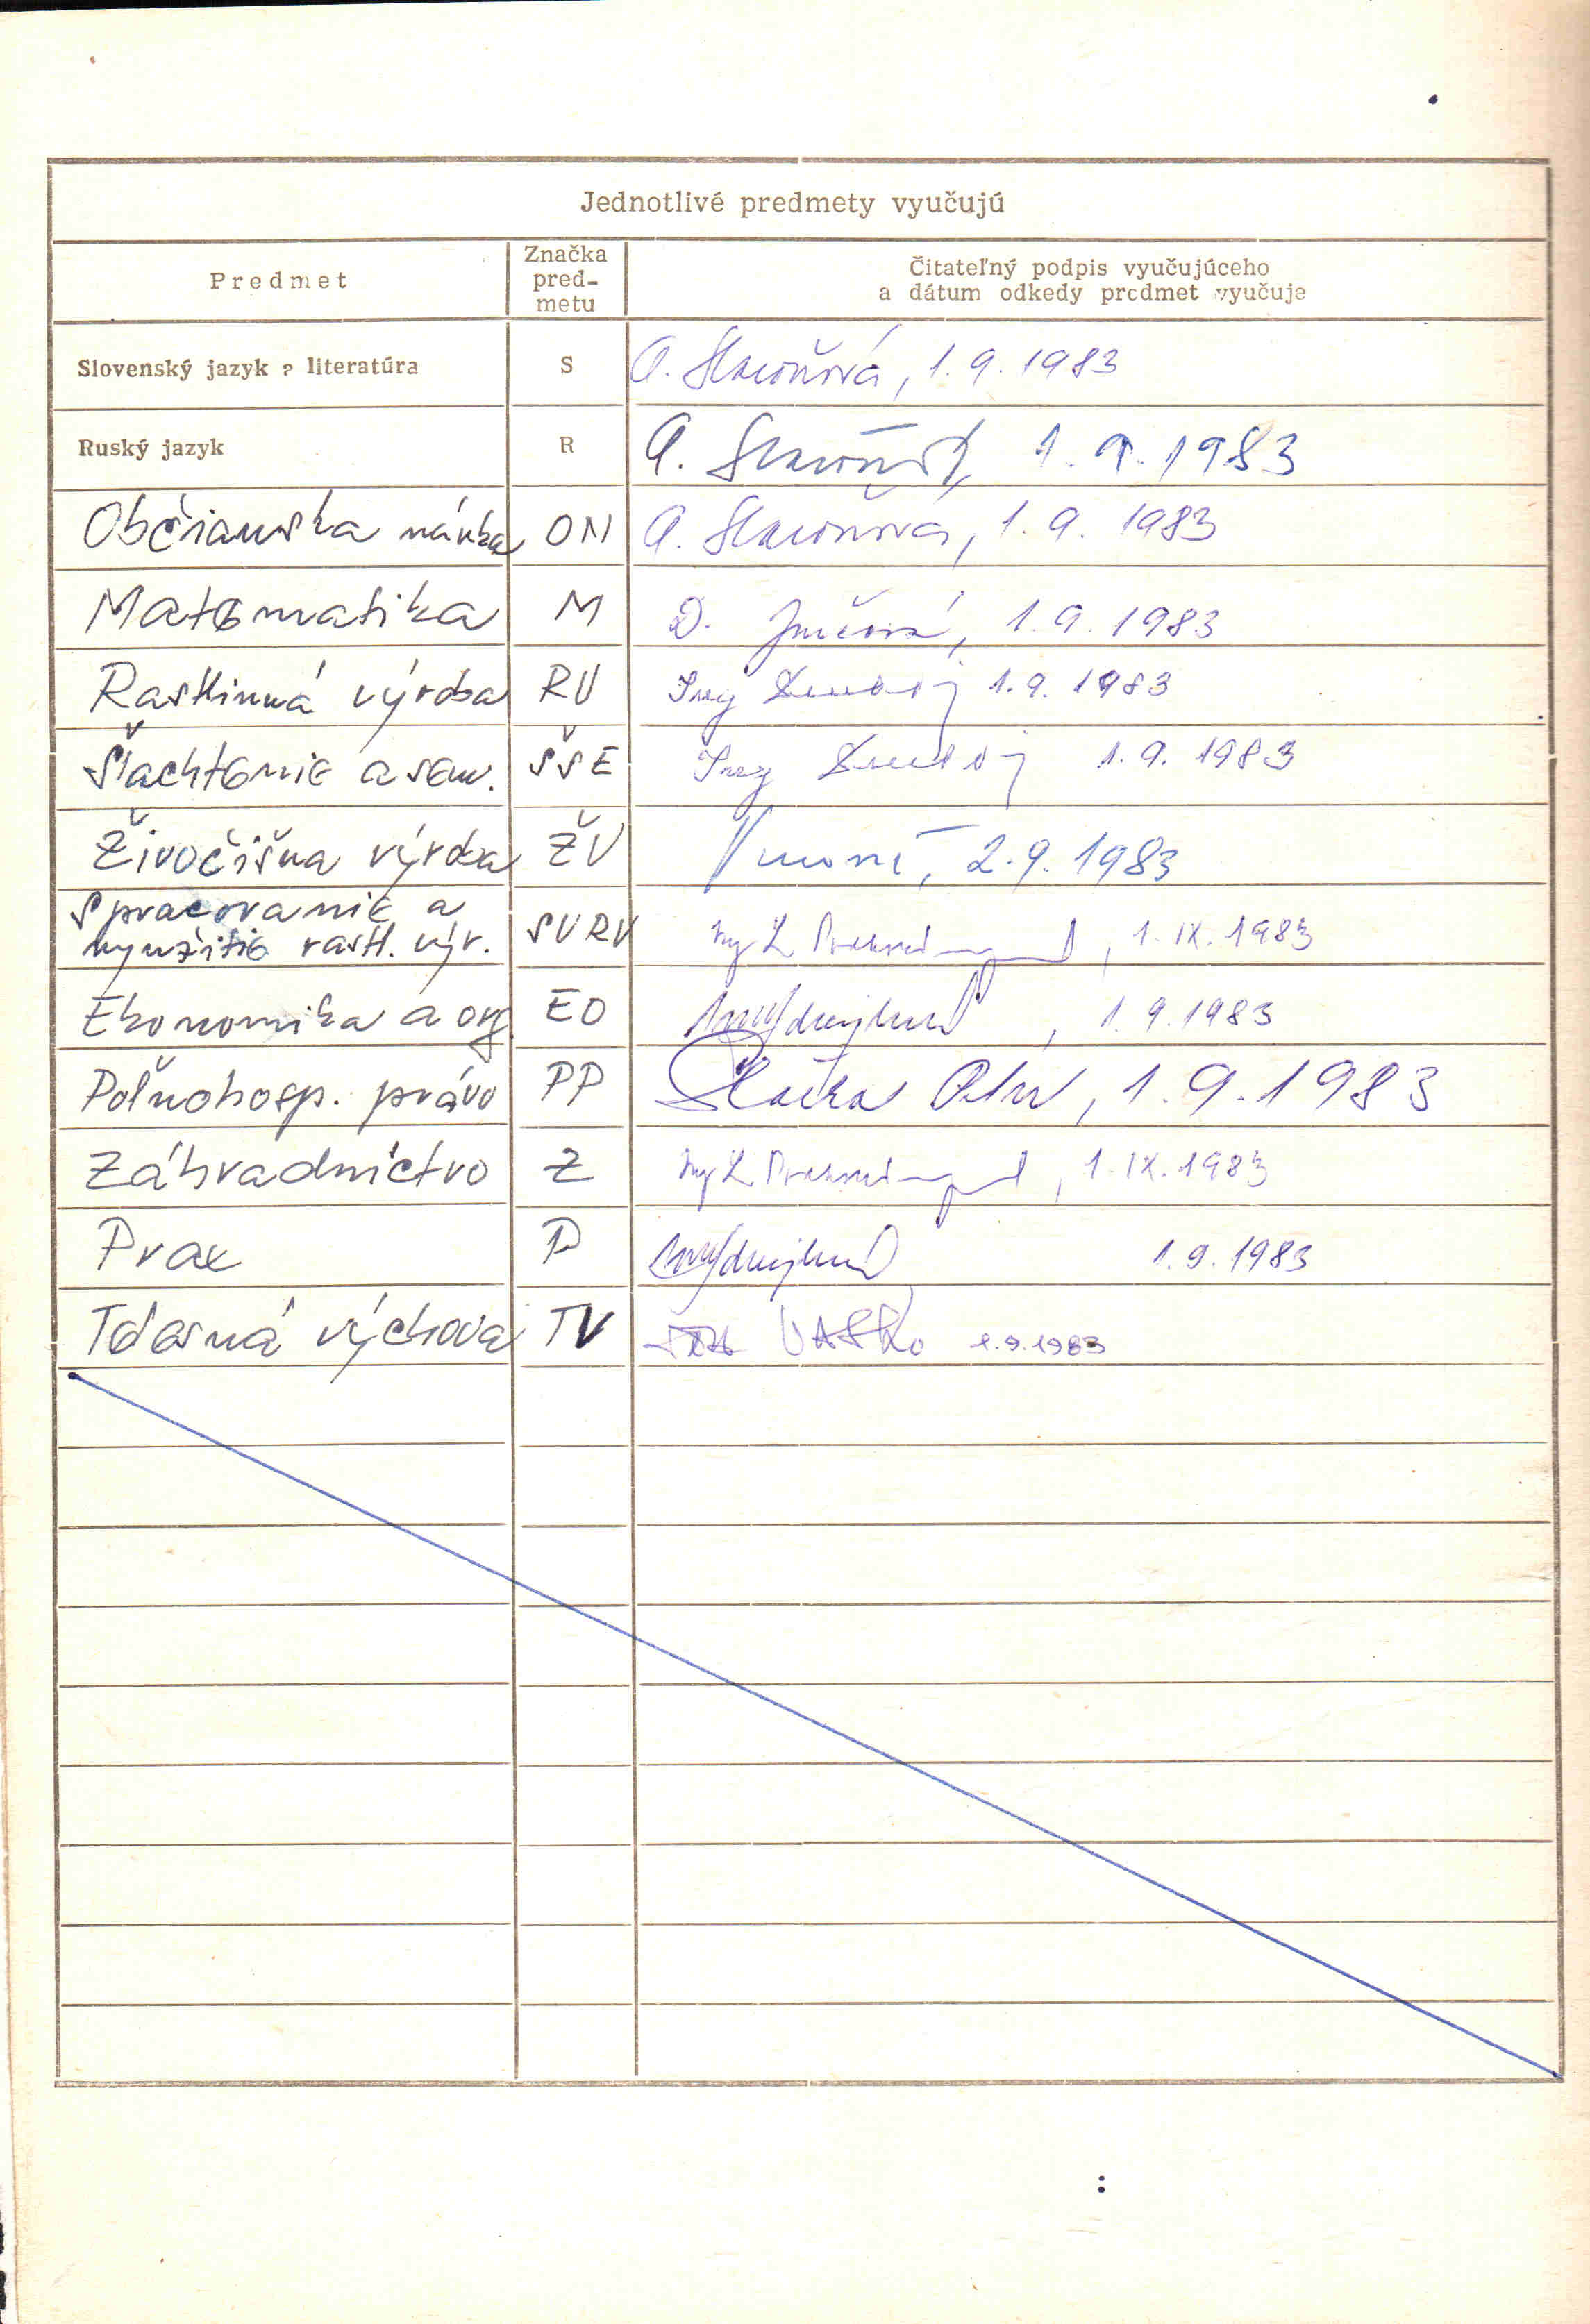 Jednotlivé predmety vyučujú
Predmet
Značka
pred-
metu
Čitateľný podpis vyučujúceho
a dátum odkedy predmet vyučuje
Slovenský jazyk a literatúra S 1.9.1983
Ruský jazyk R 1.9.1983
Občianska náuka ON 1.9.1983
Matematika M D. 1.9.1983
Rastlinná výroba RV Ing 1.9.1983
Šlachtenie a sem. ŠŠE Ing 1.9.1983
Živočíšna výroba ŽV 2.9.1983
Spracovanie a
využitie rastl. výr. SVRV Ing L 1.IX.1983
Ekonomika a org EO 1.9.1983
Poľnohosp. právo PP 1.9.1983
Záhradníctvo Z Ing L 1.IX.1983
Prax P 1.9.1983
Telesná výchova TV VAŠKo 1.9.1983